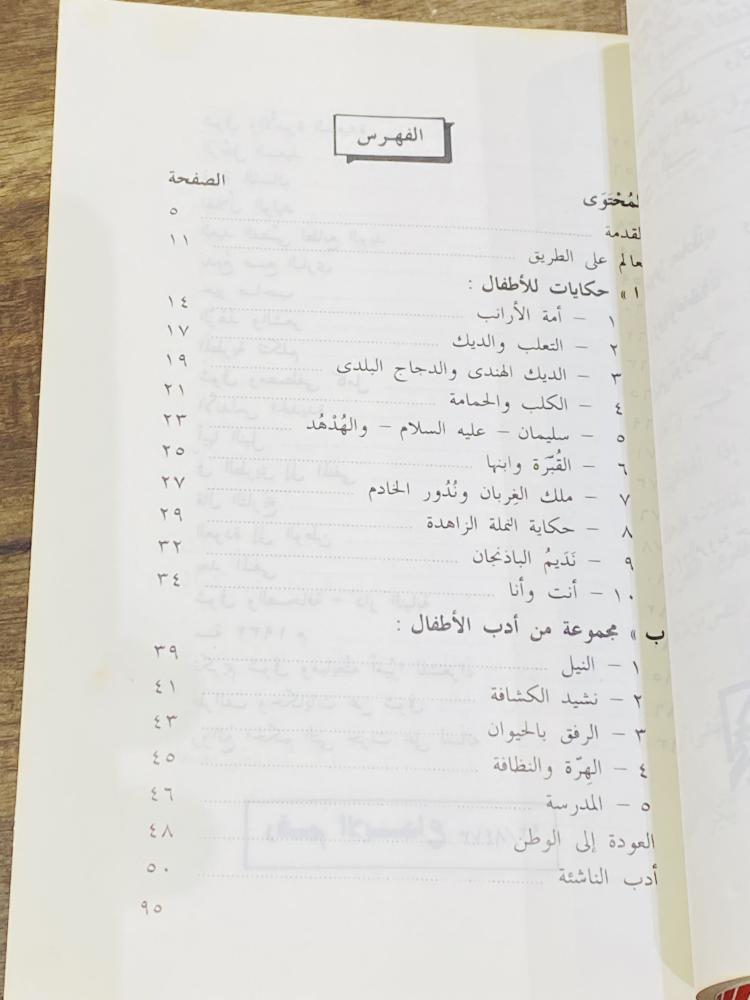 الفهرس
المُحْتَوَى الصفحة
المقدمة ٥
معالم على الطريق ١١
« ا » حكايات للأطفال :
١ - أمة الأرانب ١٤
٢ - الثعلب والديك ١٧
٣ - الديك الهندى والدجاج البلدى ١٩
٤ - الكلب والحمامة ٢١
٥ - سليمان - عليه السلام - والهُدْهُد ٢٣
٦ - القُبَّرَة وابنها ٢٥
٧ - ملك الغِربان ونُدُور الخادم ٢٧
٨ - حكاية النملة الزاهدة ٢٩
٩ - نَدَيمُ الباذنجان ٣٢
١٠ - أنت وأنا ٣٤
« ب » مجموعة من أدب الأطفال :
١ - النيل ٣٩
٢ - نشيد الكشافة ٤١
٣ - الرفق بالحيوان ٤٣
٤ - الهِرّة والنظافة ٤٥
٥ - المدرسة ٤٦
العودة إلى الوطن ٤٨
أدب الناشئة ٥٠
٩٥